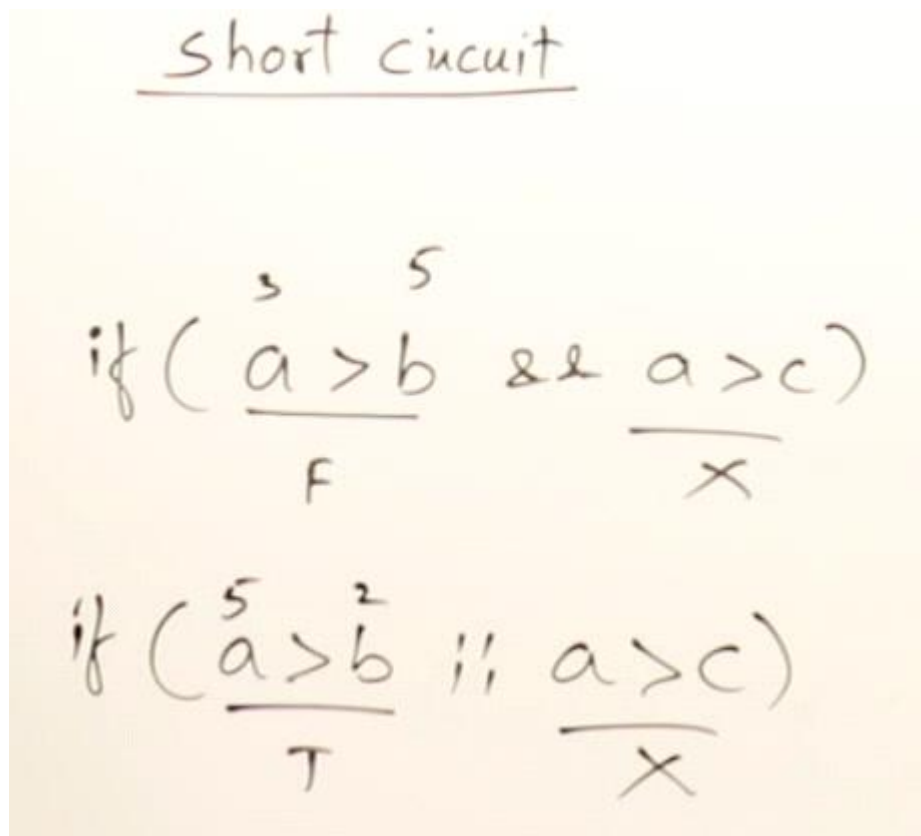 short circuit
3 5
if ( a > b && a > c )
F X
5 2
if ( a > b || a > c )
T X